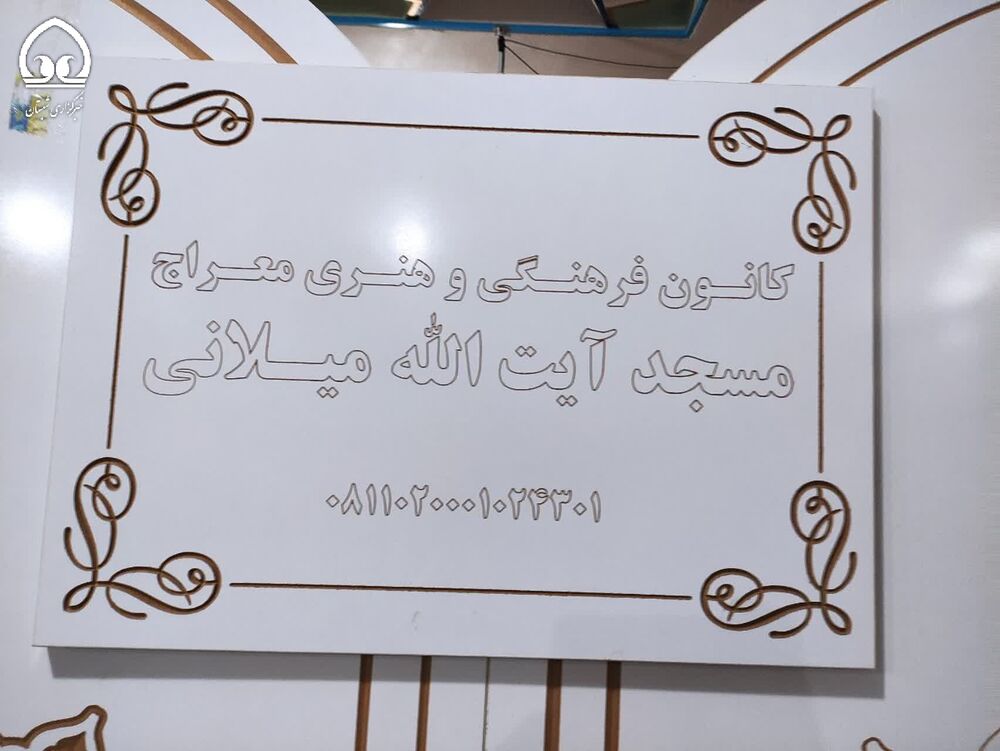 خبرگزاری شبستان
کانون فرهنگی و هنری معراج
مسجد آیت الله میلانی
۰۸۱۱۰۲۰۰۰۱۰۲۴۳۰۱